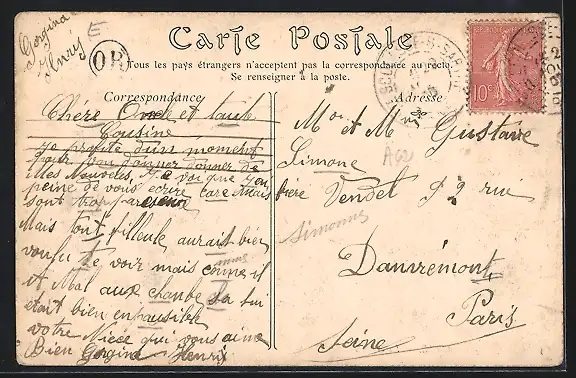 Gorgina
Henry
E
OR
Carte Postale
Tous les pays étrangers n'acceptent pas la correspondance au recto.
Se renseigner à la poste.
Correspondance
Adresse
10c
Chère Oncle et tante
Cousine
Je profite d'un moment
pour vous donner donner de
mes Nouvelles, je voi que j'ai
peine de vous ecrire care mais
sont trop
Mais tont filleule aurait bien
voulu te voir mais comme il
at Mal aux chambe sa lui
etait bien enpausible
votre Niéce qui vous aime
Bien Gorgina Henris
A62
Mr et Me Gustave
Simone
Vendet 92 rue
Simonne
Danvrémont
Paris
Seine